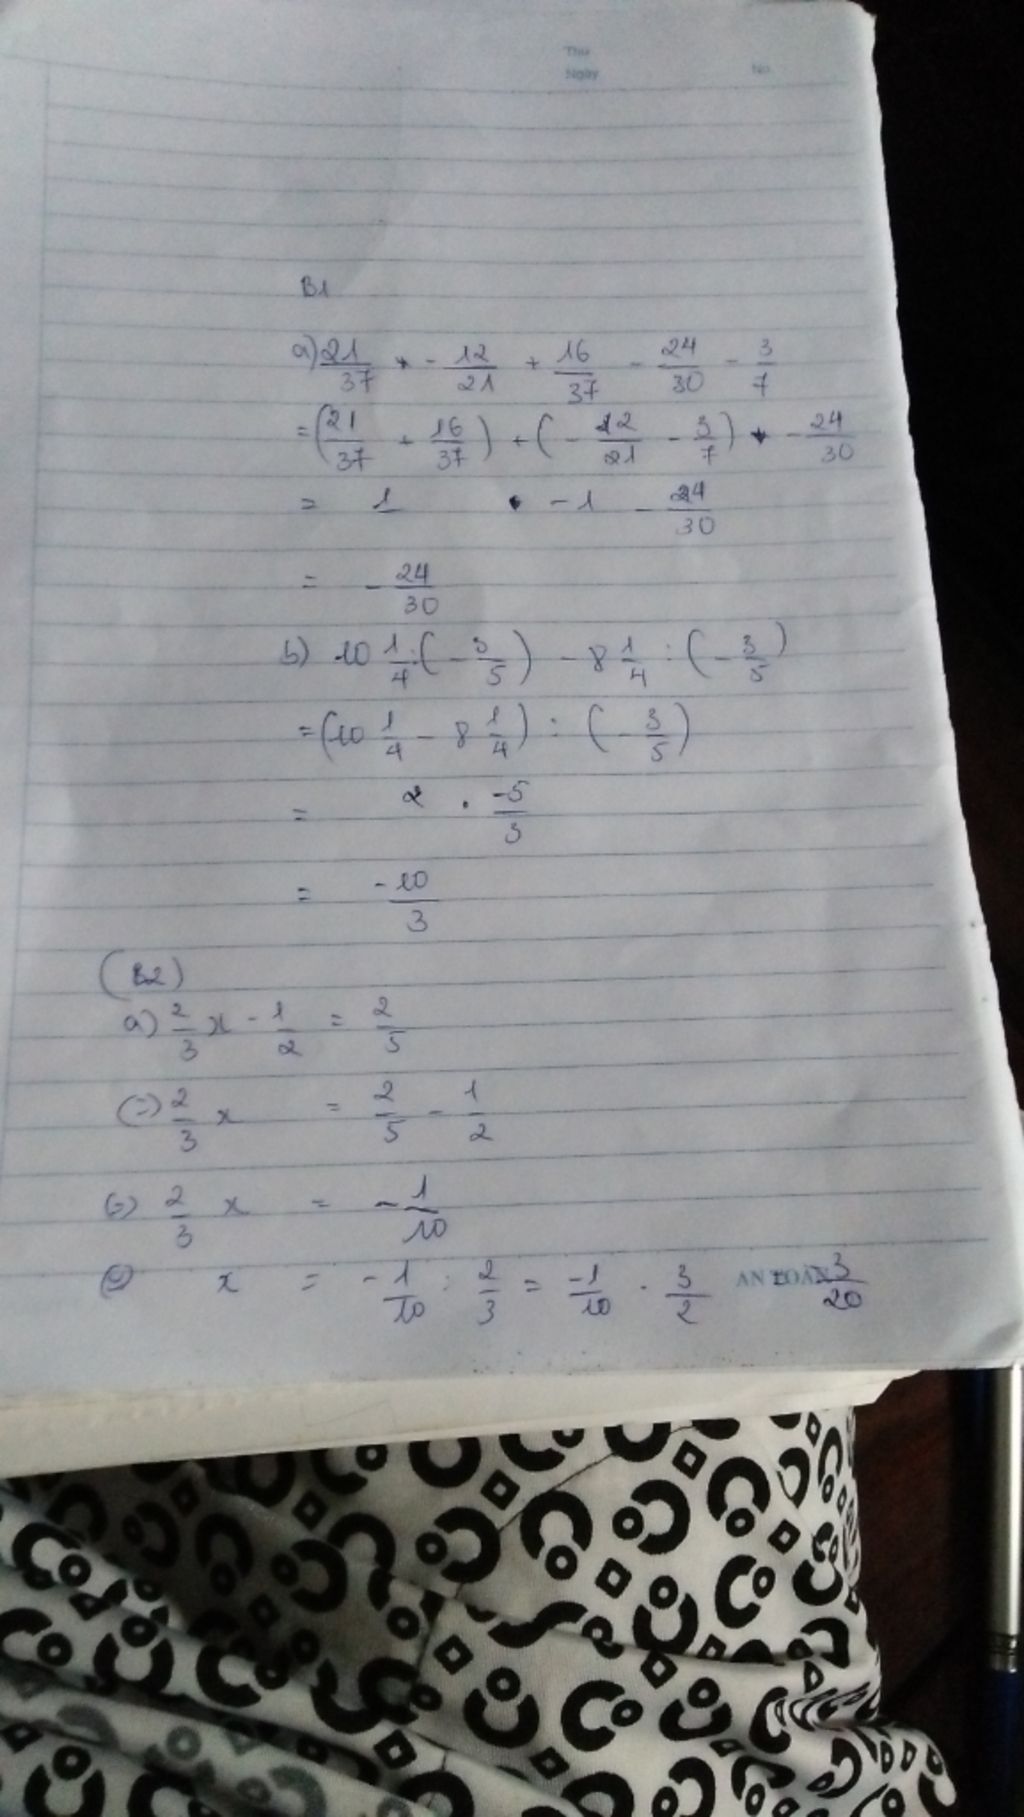 Thứ
Ngày No.
B1
a) 21/37 + - 12/21 + 16/37 - 24/30 - 3/7
= (21/37 + 16/37) + (- 12/21 - 3/7) + - 24/30
= 1 - 1 - 24/30
= - 24/30
b) 10 1/4 : (- 3/5) - 8 1/4 : (- 3/5)
= (10 1/4 - 8 1/4) : (- 3/5)
= 2 . -5/3
= -10/3
(B2)
a) 2/3 x - 1/2 = 2/5
(=) 2/3 x = 2/5 - 1/2
(=) 2/3 x = - 1/10
(=) x = - 1/10 : 2/3 = -1/10 . 3/2 = -3/20